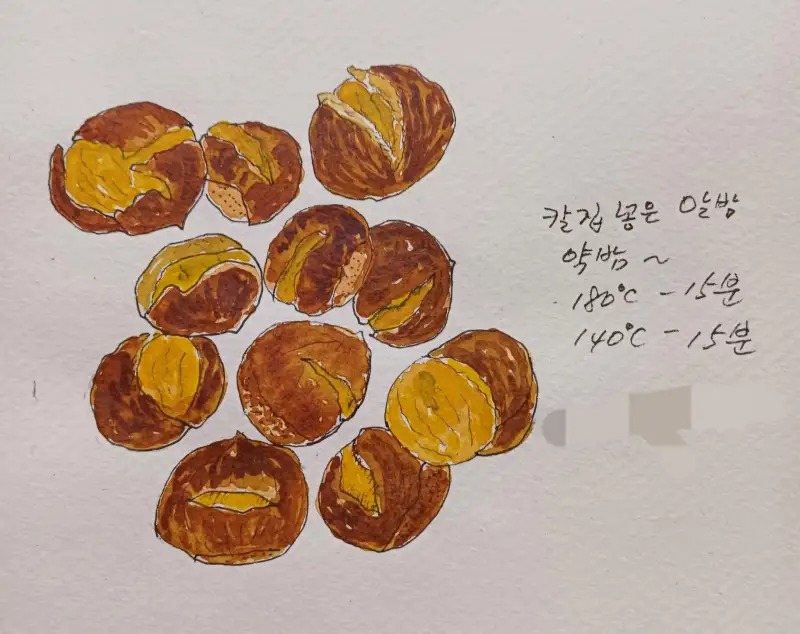 칼집 넣은 알밤
약밤~
180°C - 15분
140°C - 15분